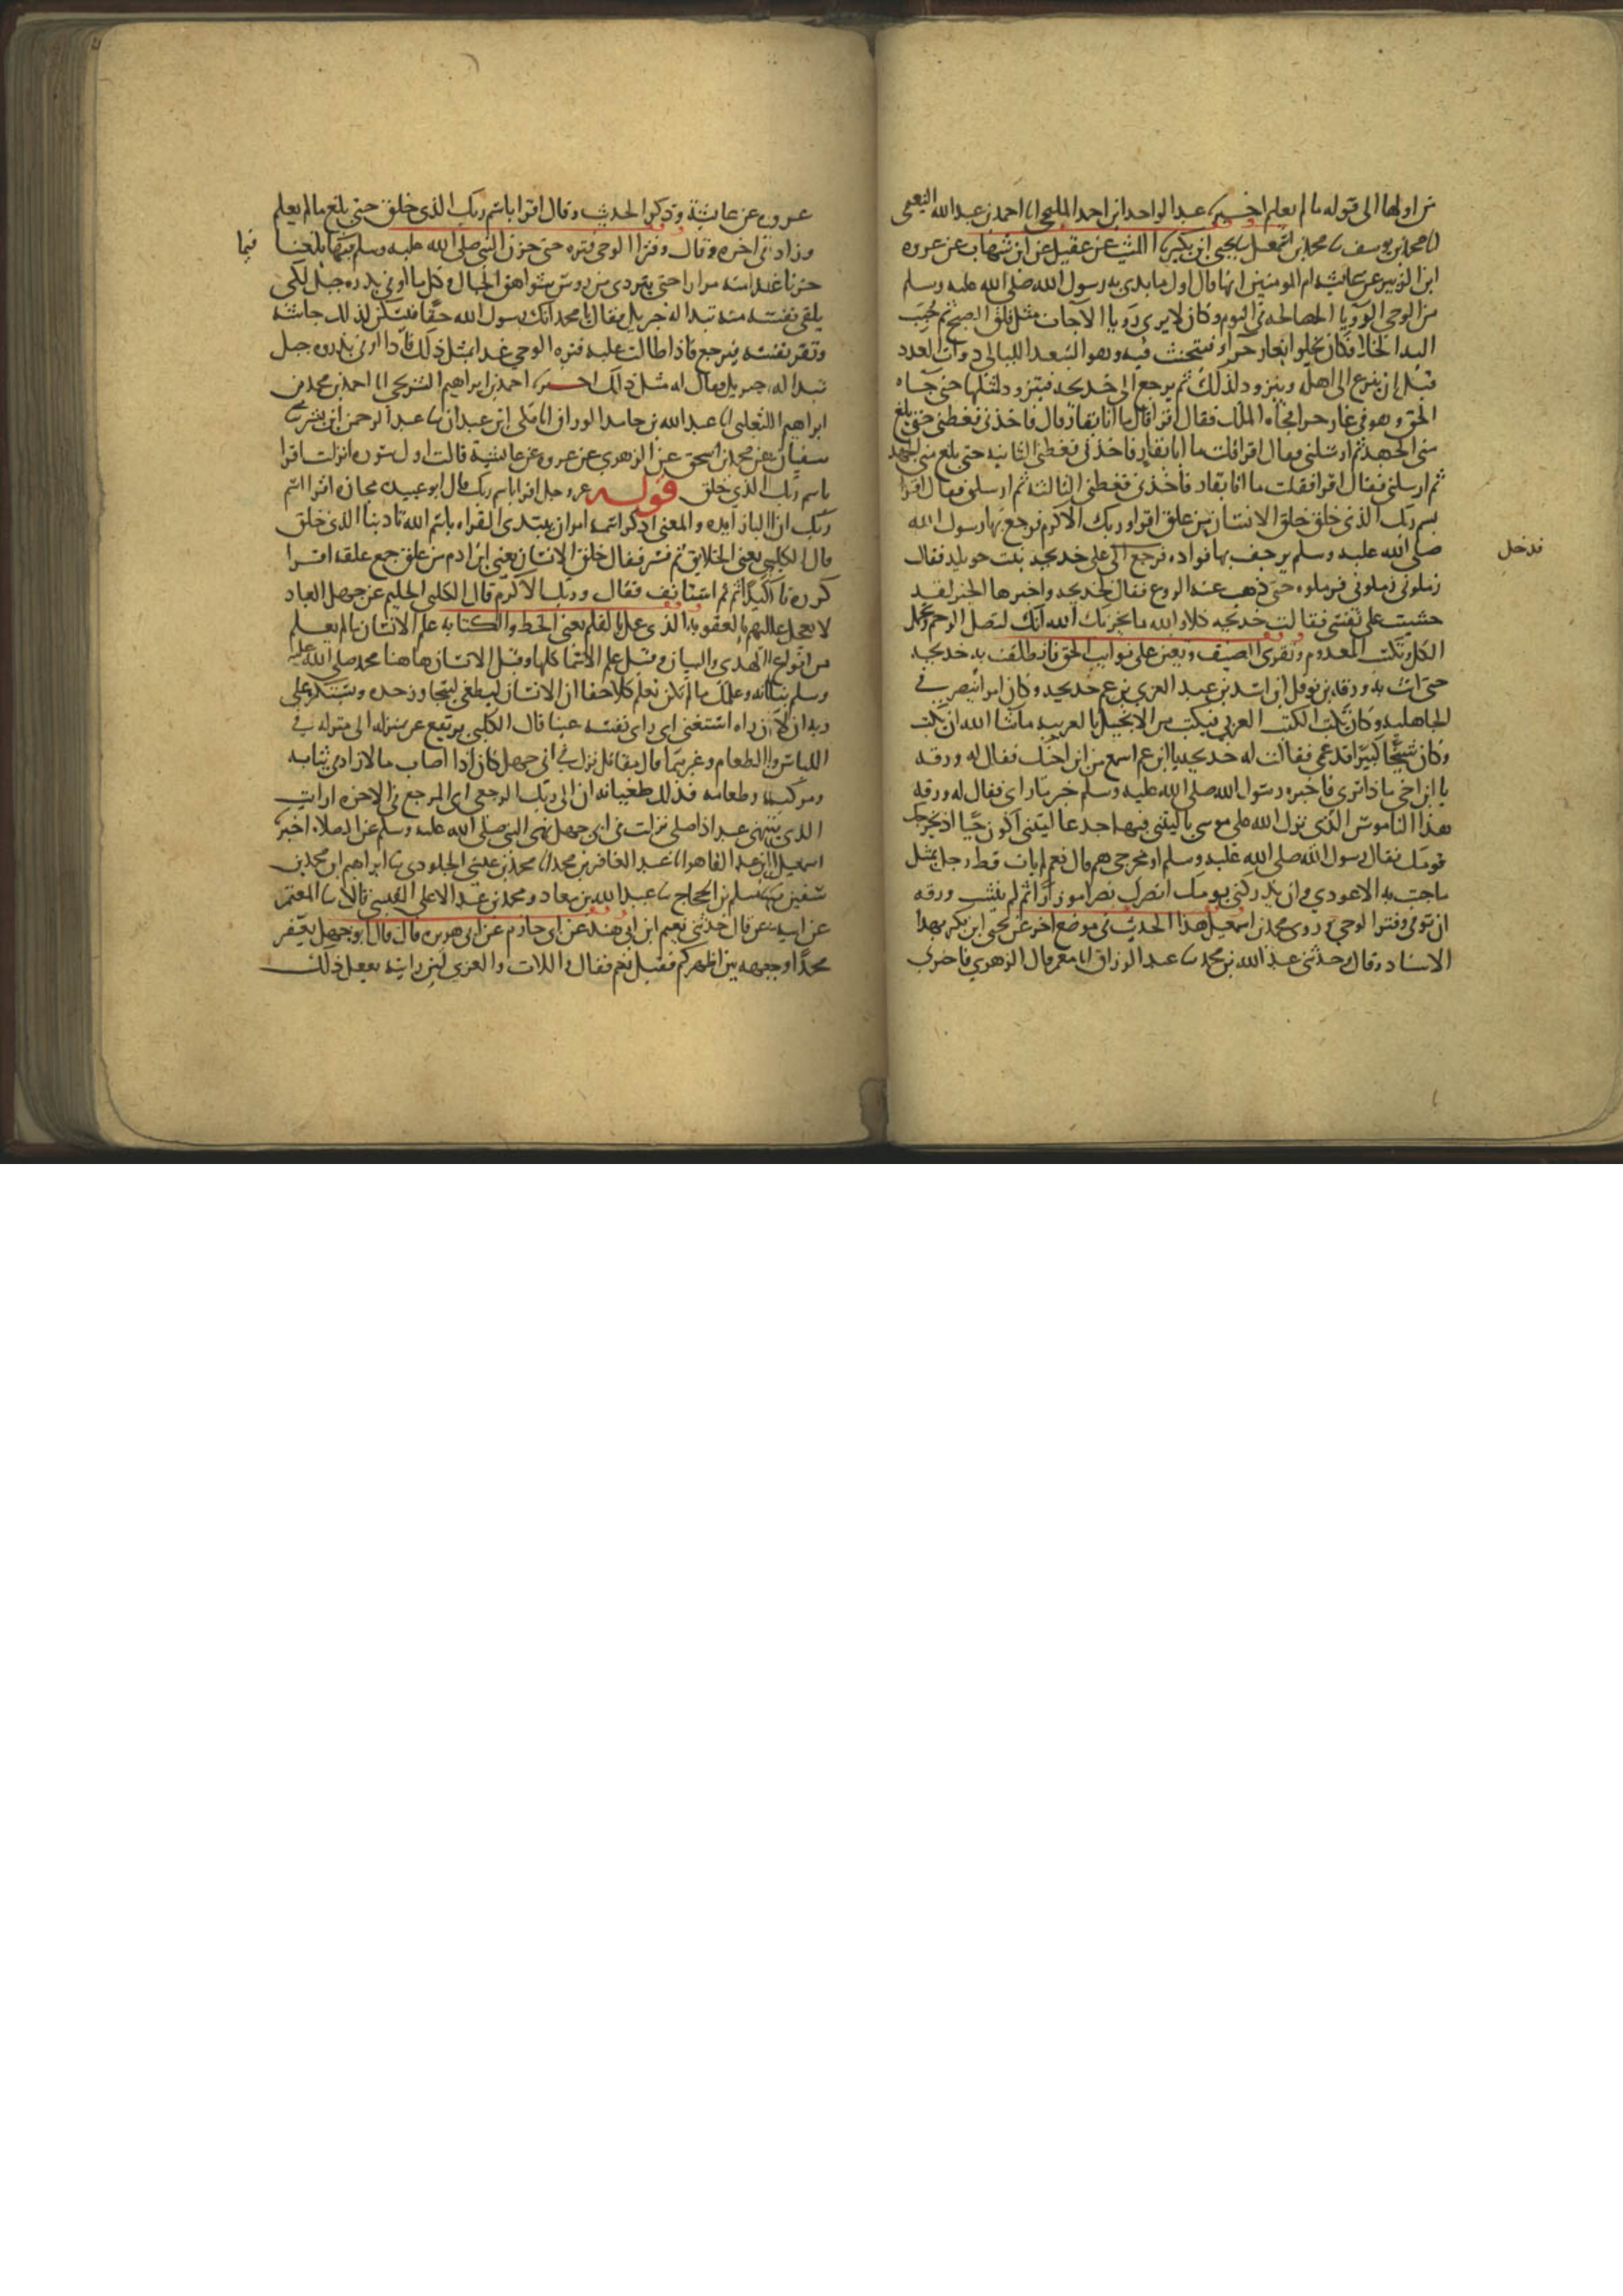 من اولها الى قوله ما لم يعلم اخبرنا عبد الواحد ابن احمد المليحي انا احمد بن عبد الله النعيمي
انا محمد بن يوسف ثنا محمد بن اسمعيل ثنا يحيى ابن بكير ثنا الليث عن عقيل عن ابن شهاب عن عروه
ابن الزبير عن عايشه ام المومنين انها قال اول ما بدي به رسول الله صلى الله عليه وسلم
من الوحي الرويا الصالحه في النوم وكان لا يرى رويا الا جات مثل فلق الصبح ثم حبب
اليه الخلا فكان يخلوا بغار حرا فيتحنث فيه وهو التعبد الليالي ذوات العدد
قبل ان ينزع الى اهله ويتزود لذلك ثم يرجع الى خديجه فيتزود لمثلها حتى جاه
الحق وهو في غار حرا فجاه الملك فقال اقرا قال ما انا بقار قال فاخذني فغطني حتى بلغ
مني الجهد ثم ارسلني فقال اقرا قلت ما انا بقار فاخذني فغطني الثانيه حتى بلغ مني الجهد
ثم ارسلني فقال اقرا فقلت ما انا بقار فاخذني فغطني الثالثه ثم ارسلني فقال اقرا
بسم ربك الذي خلق خلق الانسان من علق اقرا وربك الاكرم فرجع بها رسول الله
صلى الله عليه وسلم يرجف بها فواده فرجع الى على خديجه بنت خويلد فقال
فدخل
زملوني زملوني فزملوه حتى ذهب عنه الروع فقال لخديجه واخبرها الخبر لقد
خشيت على نفسي فقالت خديجه كلا والله ما يخزيك الله انك لتصل الرحم وتحمل
الكل وتكسب المعدوم وتقري الضيف وتعين على نوايب الحق فانطلقت به خديجه
حتى اتت به ورقه بن نوفل ابن اسد بن عبد العزي بن عم خديجه وكان امرا تنصر في
الجاهليه وكان يكتب الكتب العربي فيكتب من الانجيل بالعربيه ما شا الله ان يكتب
وكان شيخا كبيرا قد عمي فقالت له خديجه يا ابن عم اسمع من ابن اخيك فقال له ورقه
يا ابن اخي ماذا ترى فاخبره رسول الله صلى الله عليه وسلم خبر ما راى فقال له ورقه
هذا الناموس الذي نزل الله على موسى يا ليتني فيها جدعا ليتني اكون حيا اذ يخرجك
قومك فقال رسول الله صلى الله عليه وسلم او مخرجي هم قال نعم لم يات قط رجل بمثل
ما جيت به الا عودي وان يدركني يومك انصرك نصرا موزرا ثم لم ينشب ورقه
ان توفي وفتر الوحي وروى محمد بن اسمعيل هذا الحديث في موضع اخر عن يحيى ابن بكر بهذا
الاسناد وقال وحدثني عبد الله بن محمد ثنا عبد الرزاق انا معمر قال الزهري فاخبرني
عروه عن عايشة وذكر الحديث وقال اقرا باسم ربك الذي خلق حتى بلغ ما لم يعلم
وزاد في اخره وقال وفتر الوحي فتره حتى حزن النبي صلى الله عليه وسلم بلغنا
فيما
حزنا غدا منه مرارا حتى يتردى من روس شواهق الجبال فكل ما اوفى بذروه جبل لكي
يلقي نفسه منه تبدا له جبريل فقال يا محمد انك رسول الله حقا فيسكن لذلك جاشه
وتقر نفسه فيرجع فاذا طالت عليه فتره الوحي غدا لمثل ذلك فاذا اوفى بذروه جبل
تبدا له جبريل فقال له مثل ذلك اخبرنا احمد بن ابراهيم الشريحي انا احمد بن محمد بن
ابراهيم الثعلبي انا عبد الله بن حامد الوراق انا مكي ابن عبدان ثنا عبد الرحمن ابن بشر ثنا
سفيان عن محمد بن اسحق عن الزهري عن عروه عن عايشة قالت اول سوره انزلت اقرا
باسم ربك الذي خلق قوله عز وجل اقرا باسم ربك قال ابو عبيده مجازه اقرا اسم
ربك ان البا زايده والمعنى اذكر اسمه امر ان يبتدي القراه باسم الله تاديبا الذي خلق
قال الكلبي يعني الخلايق ثم فسر فقال خلق الانسان يعني ابن ادم من علق جمع علقه اقرا
كرره تاكيدا ثم استانف فقال وربك الاكرم قال الكلبي الحليم عن جهل العباد
لا يعجل عليهم بالعقوبه الذي علم بالقلم يعني الخط والكتابه علم الانسان ما لم يعلم
من انواع الهدى والبيان وقيل علم الاسما كلها وقيل الانسان هاهنا محمد صلى الله عليه
وسلم بيانه وعلمك ما لم تكن تعلم كلا حقا ان الانسان ليطغى ليتجاوز حده ويستكبر على
ربه ان لان راه استغنى اي راى نفسه غنيا قال الكلبي يرتفع عن منزله الى منزله في
اللباس والطعام وغيرهما قال مقاتل نزل في ابي جهل كان اذا اصاب مالا زاد في ثيابه
ومركبه وطعامه فذلك طغيانه ان الى ربك الرجعى اي المرجع في الاخره ارايت
الذي ينهى عبدا اذا صلى نزلت في ابي جهل نهى النبي صلى الله عليه وسلم عن الصلاه اخبرنا
اسمعيل بن عبد القاهر انا عبد الغافر بن محمد انا محمد بن عيسى الجلودي ثنا ابراهيم ابن محمد بن
سفين ثنا مسلم بن الحجاج ثنا عبد الله بن معاد ومحمد بن عبد الاعلى القيسي قالا ثنا المعتمر
عن ابيه قال حدثني نعيم ابن ابي هند عن ابي حازم عن ابي هريره قال قال ابو جهل يعفر
محمدا وجهه بين اظهركم فقيل نعم فقال واللات والعزى لين رايته يفعل ذلك